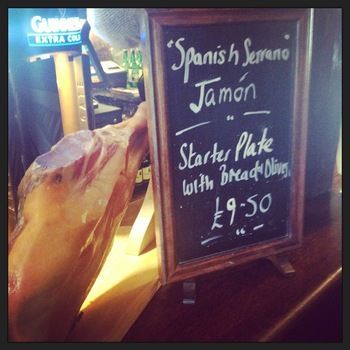 GUINNESS
EXTRA COLD
"Spanish Serrano"
Jamón
"
Starter Plate
with Bread & Olives.
£9-50
"